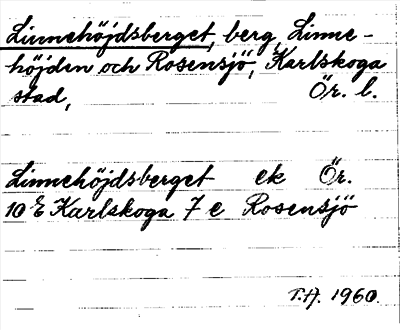 Linnehöjdsberget, berg, Linne-
höjden och Rosensjö, Karlskoga
stad, Ör. l.
Linnehöjdsberget ek Ör.
10 E Karlskoga 7 e Rosensjö
T.H. 1960.